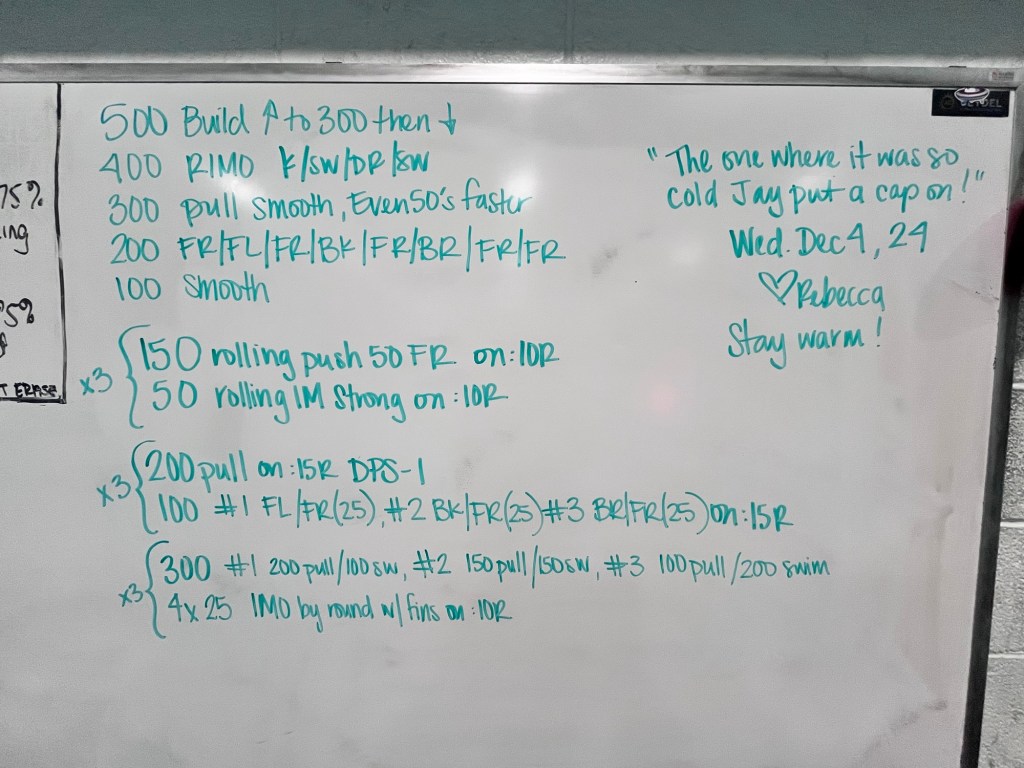 500 Build ↑ to 300 then ↓
400 RIMO K/SW/DR/SW
300 pull smooth, Even 50's faster
200 FR/FL/FR/BK/FR/BR/FR/FR
100 Smooth
x3 { 150 rolling push 50 FR on :10R
50 rolling IM Strong on :10R
x3 { 200 pull on :15R DPS-1
100 #1 FL/FR(25), #2 BK/FR(25) #3 BR/FR(25) on :15R
x3 { 300 #1 200 pull/100 sw, #2 150 pull/150 sw, #3 100 pull/200 swim
4x25 IMO by round w/ fins on :10R
"The one where it was so
cold Jay put a cap on!"
Wed. Dec 4, 24
♡Rebecca
Stay warm!
75%
ING
5%
T ERASE